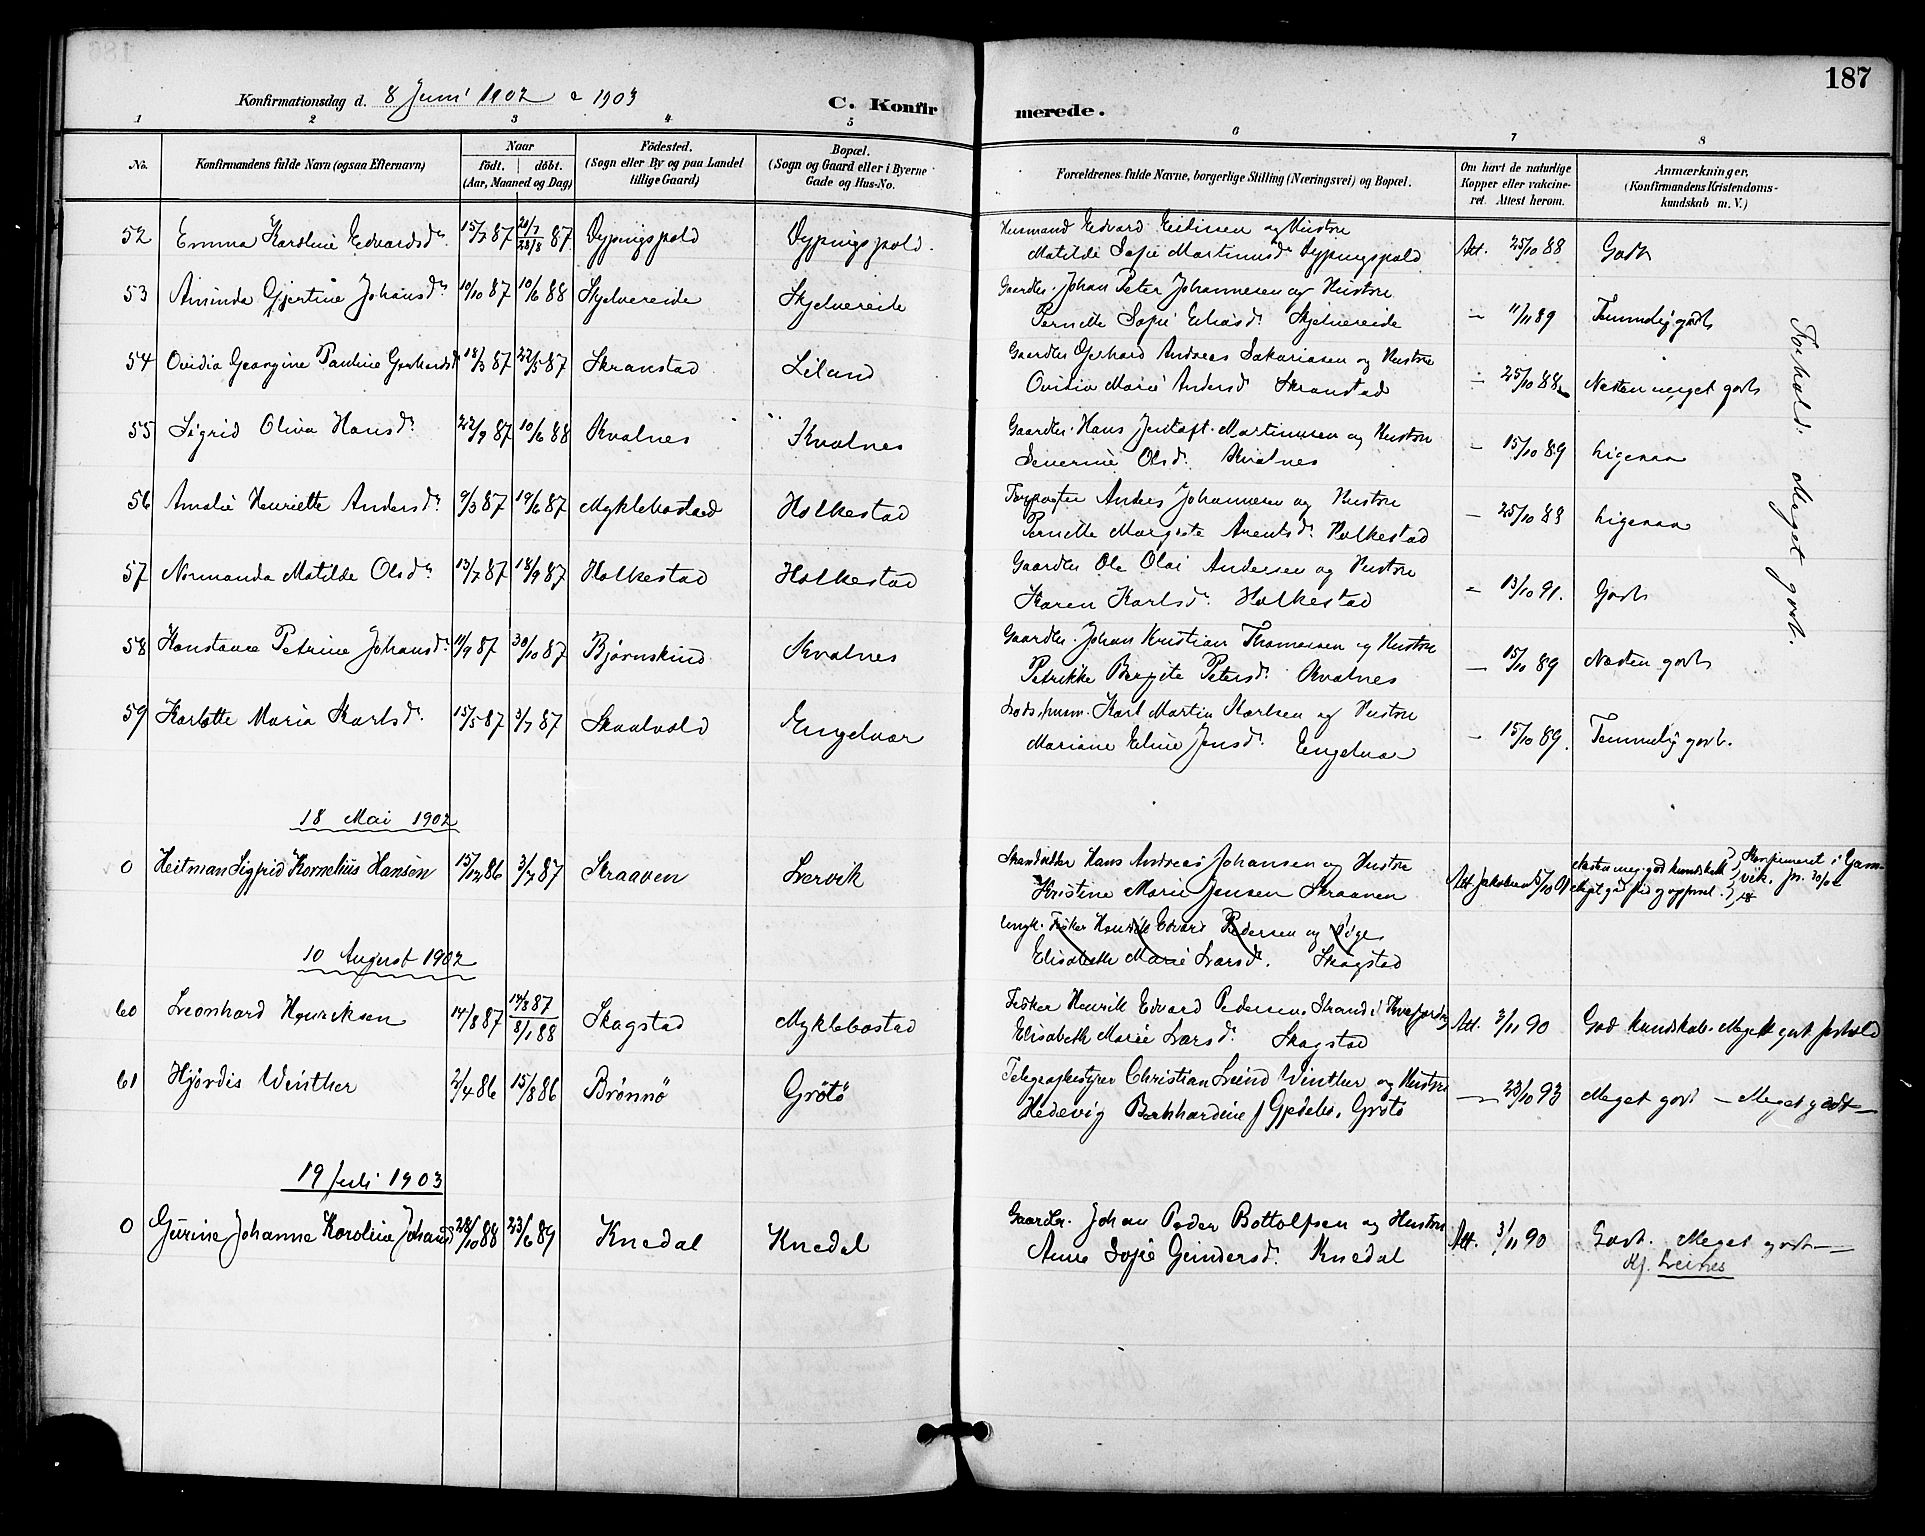 187
Konfirmationsdag d. 8 Juni 1902 & 1903
C. Konfirmerede.
1 2 3 4 5 6 7 8
No. Konfirmandens fulde Navn (ogsaa Efternavn) Naar födt. döbt. (Aar, Maaned og Dag) Födested. (Sogn eller By og paa Landet tillige Gaard) Bopæl. (Sogn og Gaard eller i Byerne Gade og Hus-No. Forældrenes fulde Navne, borgerlige Stilling (Næringsvei) og Bopæl. Om havt de naturlige Kopper eller vakcineret. Attest herom. Anmærkninger, (Konfirmandens Kristendomskundskab m. V.)
52 Emma Karoline Edvardsdr. 15/7 87 20/7 28/8 87 Dypingspold Dypingspold. Husmand Edvard Eilissen og Hustru
Matilde Sofie Martinusdr Dypingspold Att. 25/10 88 Godt
53 Aminda Gjertine Johansdr 10/10 87 10/6 88 Skjelvereide Skjelvereide Gaardbr. Johan Peter Johannesen og Hustru
Pernette Sofie Eliasdr. Skjelvereide — 11/11 89 Temmelig godt
54 Ovidia Georgine Pauline Gerhardsdr 18/3 87 22/5 87 Skranstad Leland Gaardbr Gerhard Andreas Sakariasen og Hustru
Ovidia Marie Andersdr Skranstad — 25/10 88 Næsten meget godt
55 Sigrid Oliva Hansdr. 22/9 87 10/6 88 Kvalnes Kvalnes Gaardbr. Hans Jentoft Martinusen og Hustru
Severine Olsdr. Kvalnes — 15/10 89 Ligesaa
56 Amalie Henriette Andersdr. 9/3 87 19/6 87 Myklebostad Holkestad Forpagter Anders Johannesen og Hustru
Pernette Margrete Arentsdr. Holkestad — 25/10 88 Ligesaa
57 Normanda Matilde Olsdr. 13/7 87 18/9 87 Holkestad Holkestad Gaardbr Ole Olai Andersen og Hustru
Karen Karlsdr. Holkestad — 13/10 91. Godt
58 Konstance Petrine Johansdr. 11/9 87 30/10 87 Bjørnskind Kvalnes Gaardbr. Johan Kristian Thomassen og Hustru
Petrikke Bergite Petersdr. Kvalnes — 15/10 89 Næsten godt
59 Karlotte Maria Karlsdr. 15/5 87 3/7 87 Skaalvold Engelvær Lods, husm. Karl Martin Karlsen og Hustru
Mariane Eline Jensdr. Engelvær — 15/10 89. Temmelig godt.
Forhold: Meget godt.
18 Mai 1902
0 Heitman Sigfrid Kornelius Hansen 15/12 86 3/7 87 Skraaven Lervik Strandsidder Hans Andreas Johansen og Hustru
Kristine Marie Jensen Skraaven Att Næsten meg. god kundskab Konfirmeret i Gamvik.
Meget god flid og opførsel.
Ungk. Fisker Henrik Edvard Pedersen og Pige
Elisabeth Marie Larsdr. Skagstad
10 August 1902
60 Leonhard Henriksen 14/8 87 8/1 88 Skagstad Myklebostad Fisker Henrik Edvard Pedersen, Strand i Kvæfjord og
Elisabeth Marie Larsdr. Skagstad Att. 3/11 90 God kundskab. Meget godt forhold
61 Hjördis Winther 2/4 86 15/8 86 Brönnö Grötö Telegrafbestyrer Christian Lund Winther og Hustru
Hedevig Bernhardine f. Gjedebo, Grötö — 23/10 93 Meget godt — Meget godt —
19 Juli 1903
0 Gurine Johanne Karoline Johansd 28/10 88 23/6 89 Knedal Knedal Gaardbr. Johan Peder Bottolfsen og Hustru
Anne Sofie Gundersd. Knedal Att. 3/11 90 Godt. Meget godt —
Kj. Leines